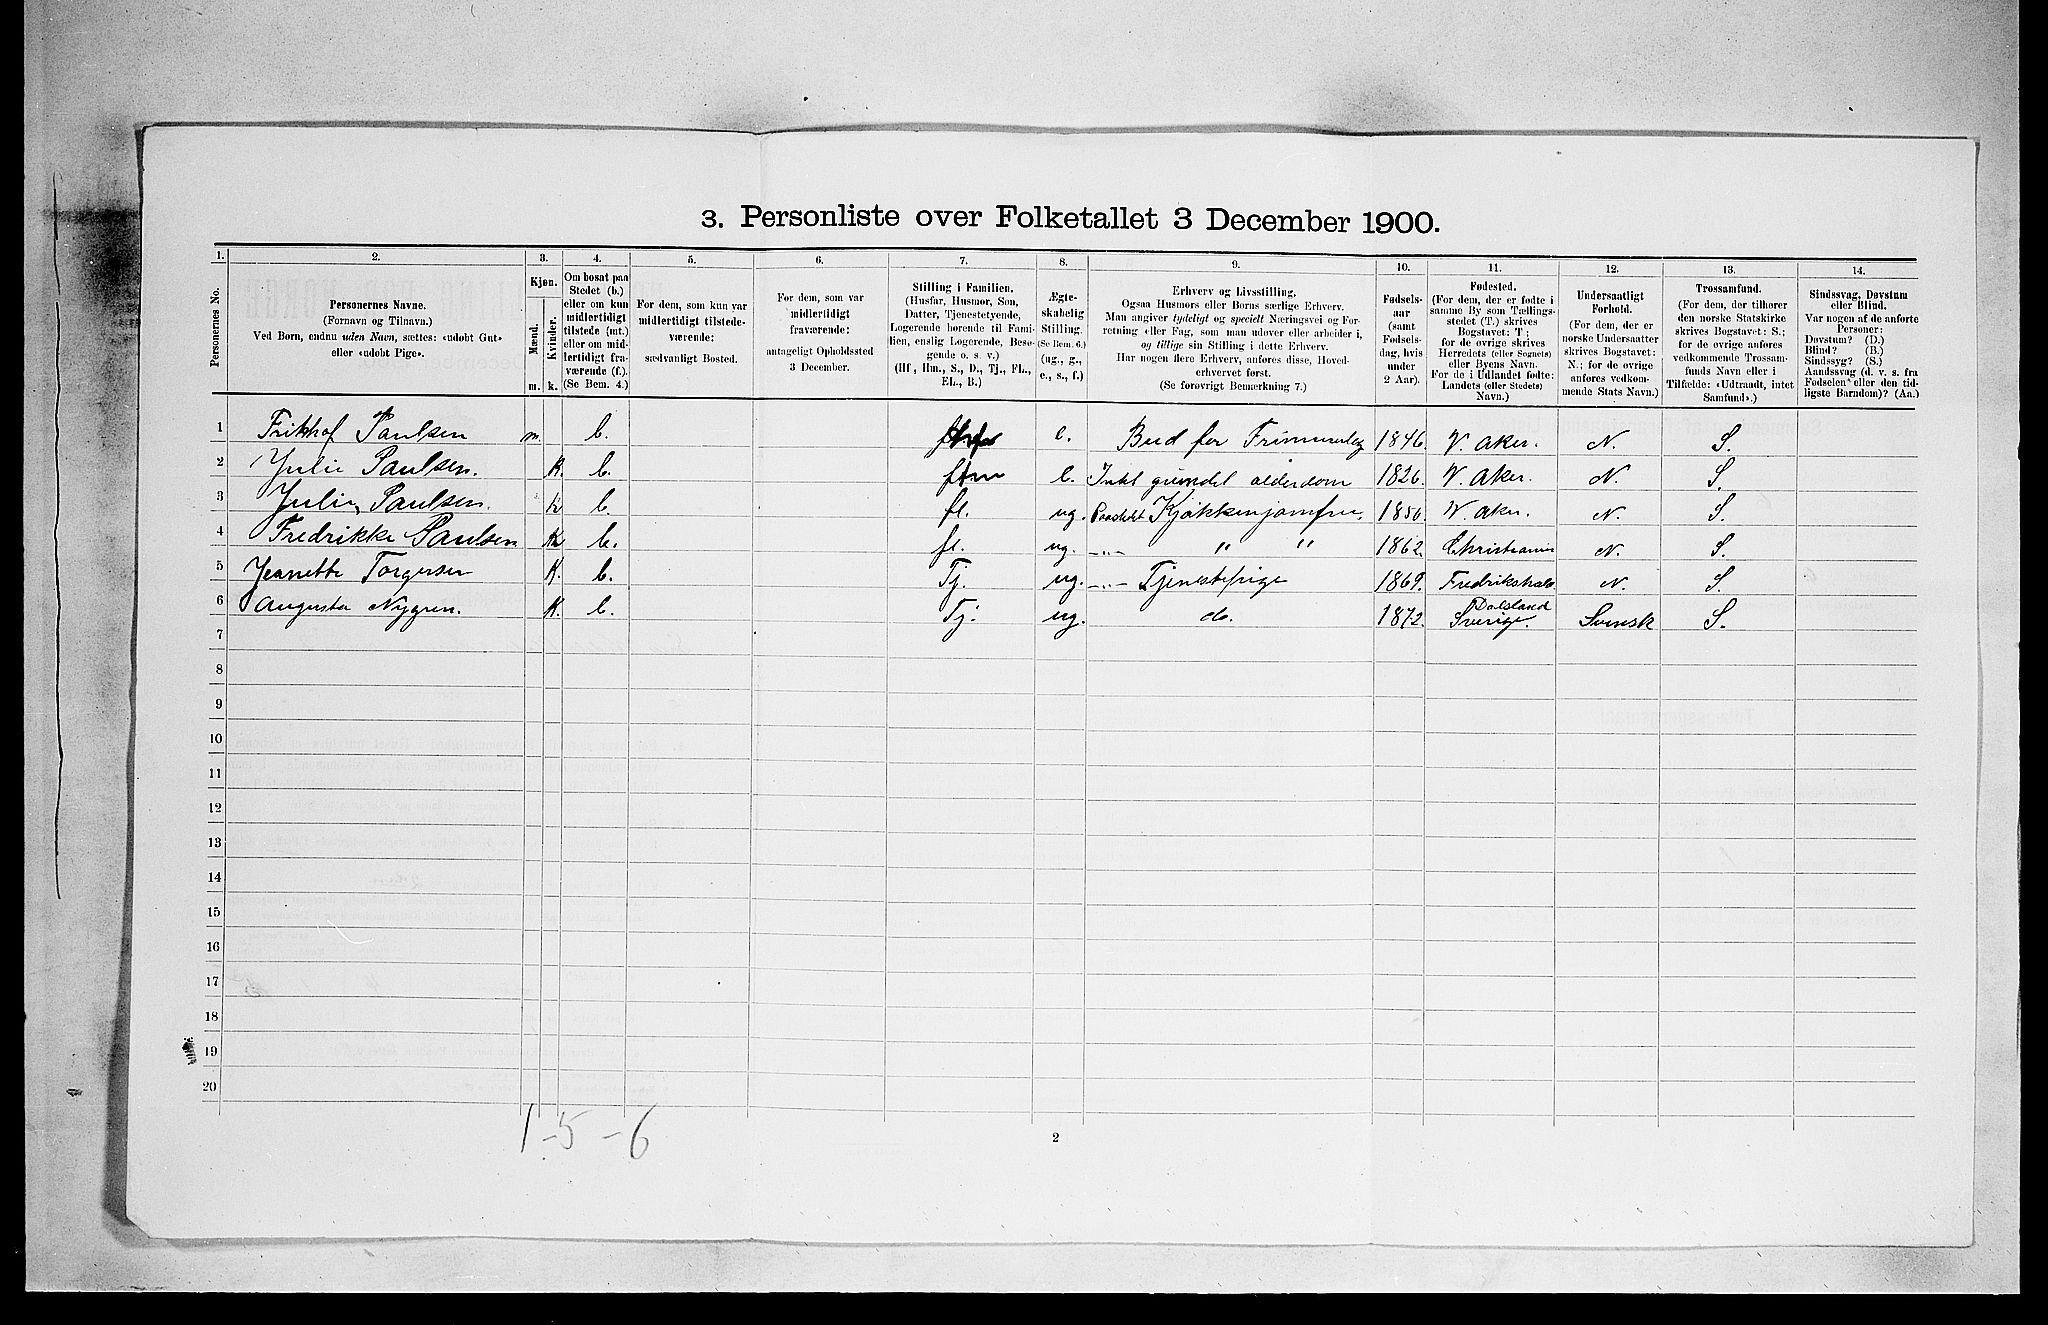 3. Personliste over Folketallet 3 December 1900.
1. 2. 3. 4. 5. 6. 7. 8. 9. 10. 11. 12. 13. 14.
Personernes No.
Personernes Navne.
(Fornavn og Tilnavn.)
Ved Børn, endnu uden Navn, sættes: «udøbt Gut»
eller «udøbt Pige».
Kjøn.
Mænd.
Kvinder.
m. k.
Om bosat paa
Stedet (b.)
eller om kun
midlertidigt
tilstede (mt.)
eller om mid-
lertidigt fra-
værende (f.).
(Se Bem. 4.)
For dem, som kun var
midlertidigt tilstede-
værende:
sædvanligt Bosted.
For dem, som var
midlertidigt
fraværende:
antageligt Opholdssted
3 December.
Stilling i Familien.
(Husfar, Husmor, Søn,
Datter, Tjenestetyende,
Logerende hørende til Fami-
lien, enslig Logerende, Besø-
gende o. s. v.)
(Hf., Hm., S., D., Tj., FL.,
EL., B.)
Ægte-
skabelig
Stilling.
(Se Bem. 6.)
(ug., g.,
e., s., f.)
Erhverv og Livsstilling.
Ogsaa Husmors eller Børns særlige Erhverv.
Man angiver tydeligt og specielt Næringsvei og For-
retning eller Fag, som man udøver eller arbeider i,
og tillige sin Stilling i dette Erhverv.
Har nogen flere Erhverv, anføres disse, Hoved-
erhvervet først.
(Se forøvrigt Bemærkning 7.)
Fødsels-
aar
(samt
Fødsels-
dag, hvis
under
2 Aar).
Fødested.
(For dem, der er fødte i
samme By som Tællings-
stedet (T.) skrives
Bogstavet: T;
for de øvrige skrives
Herredets (eller Sognets)
eller Byens Navn.
For de i Udlandet fødte:
Landets (eller Stedets)
Navn.)
Undersaatligt
Forhold.
(For dem, der er
norske Undersaatter
skrives Bogstavet:
N.; for de øvrige
anføres vedkom-
mende Stats Navn.)
Trossamfund.
(For dem, der tilhører
den norske Statskirke
skrives Bogstavet: S.;
for de øvrige anføres
vedkommende Trossam-
funds Navn eller i
Tilfælde: «Udtraadt, intet
Samfund».)
Sindssvag, Døvstum
eller Blind.
Var nogen af de anførte
Personer:
Døvstum? (D.)
Blind? (B.)
Sindssyg? (S.)
Aandssvag (d. v. s. fra
Fødselen eller den tid-
ligste Barndom)? (Aa.)
1 Frithhof Paulsen m. b. e. Bud for 1846. V. Aker. N. S.
2 Julie Paulsen. K. b. Hm e. alderdom 1826. V. Aker. N. S.
3 Paulsen. K b. fl. ug. Kjøkkenjomfru. 1850. V. Aker. N. S.
4 Fredrikke Paulsen K b. fl. ug. -"- " " 1862. Christiania N. S.
5 Jeanette Torgersen K. b. Tj. ug. -"- Tjenestepige 1869. N. S.
6 Augusta Nygren. K. b. Tj. ug. do. 1872. Dalsland Sverige. Svensk S.
7
8
9
10
11
12
13
14
15
16
17
18
19
20
1-5-6
2